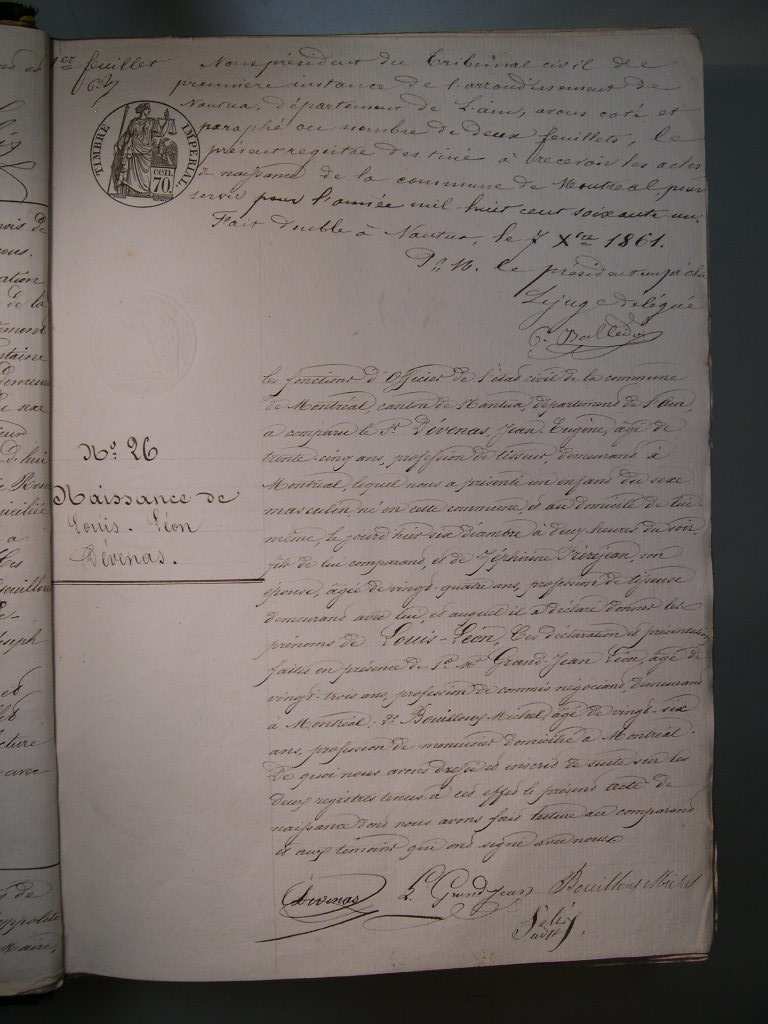 1er feuillet
Nous président du Tribunal civil de
première instance de l'arrondissement de
Nantua, département de l'ain, avons coté et
paraphé au nombre de deux feuillets, le
présent registre destiné à recevoir les actes
de naissance de la commune de Montréal, pour
servir pour l'année mil huit cent soixante un.
Fait double à Nantua, le 7 Xbre 1861.
TIMBRE IMPÉRIAL.
70 cen.
le président empêché
Le juge délégué
les fonctions d'Officier de l'état civil de la commune
de Montréal, canton de Nantua, département de l'Ain,
a comparu le Sr. Dévenas, Jean Eugène, âgé de
trente-cinq ans, profession de tisseur, demeurant à
Montréal, lequel nous a présenté un enfant du sexe
masculin né en cette commune, et au domicile de lui-
même, le jourd'hier six décembre à deux heures du soir
fils de lui comparant, et de Joséphine Frèrejean, son
épouse, âgée de vingt-quatre ans, profession de tisseuse
demeurant avec lui, et auquel il a déclaré donner les
prénoms de Louis-Léon, Ces déclaration et présentation
faites en présence de 1o Mr Grand-Jean Léon, âgé de
vingt-trois ans, profession de commis négociant, demeurant
à Montréal, 2o Bouilloux Michel, âgé de vingt-six
ans, profession de menuisier domicilié à Montréal.
De quoi nous avons dressé et inscrit de suite sur les
deux registres tenus à cet effet le présent acte de
naissance dont nous avons fait lecture au comparant
et aux témoins qui ont signé avec nous.
No. 26
Naissance de
Louis-Léon
Dévenas.
Dévenas L. Grand Jean Bouilloux Michel